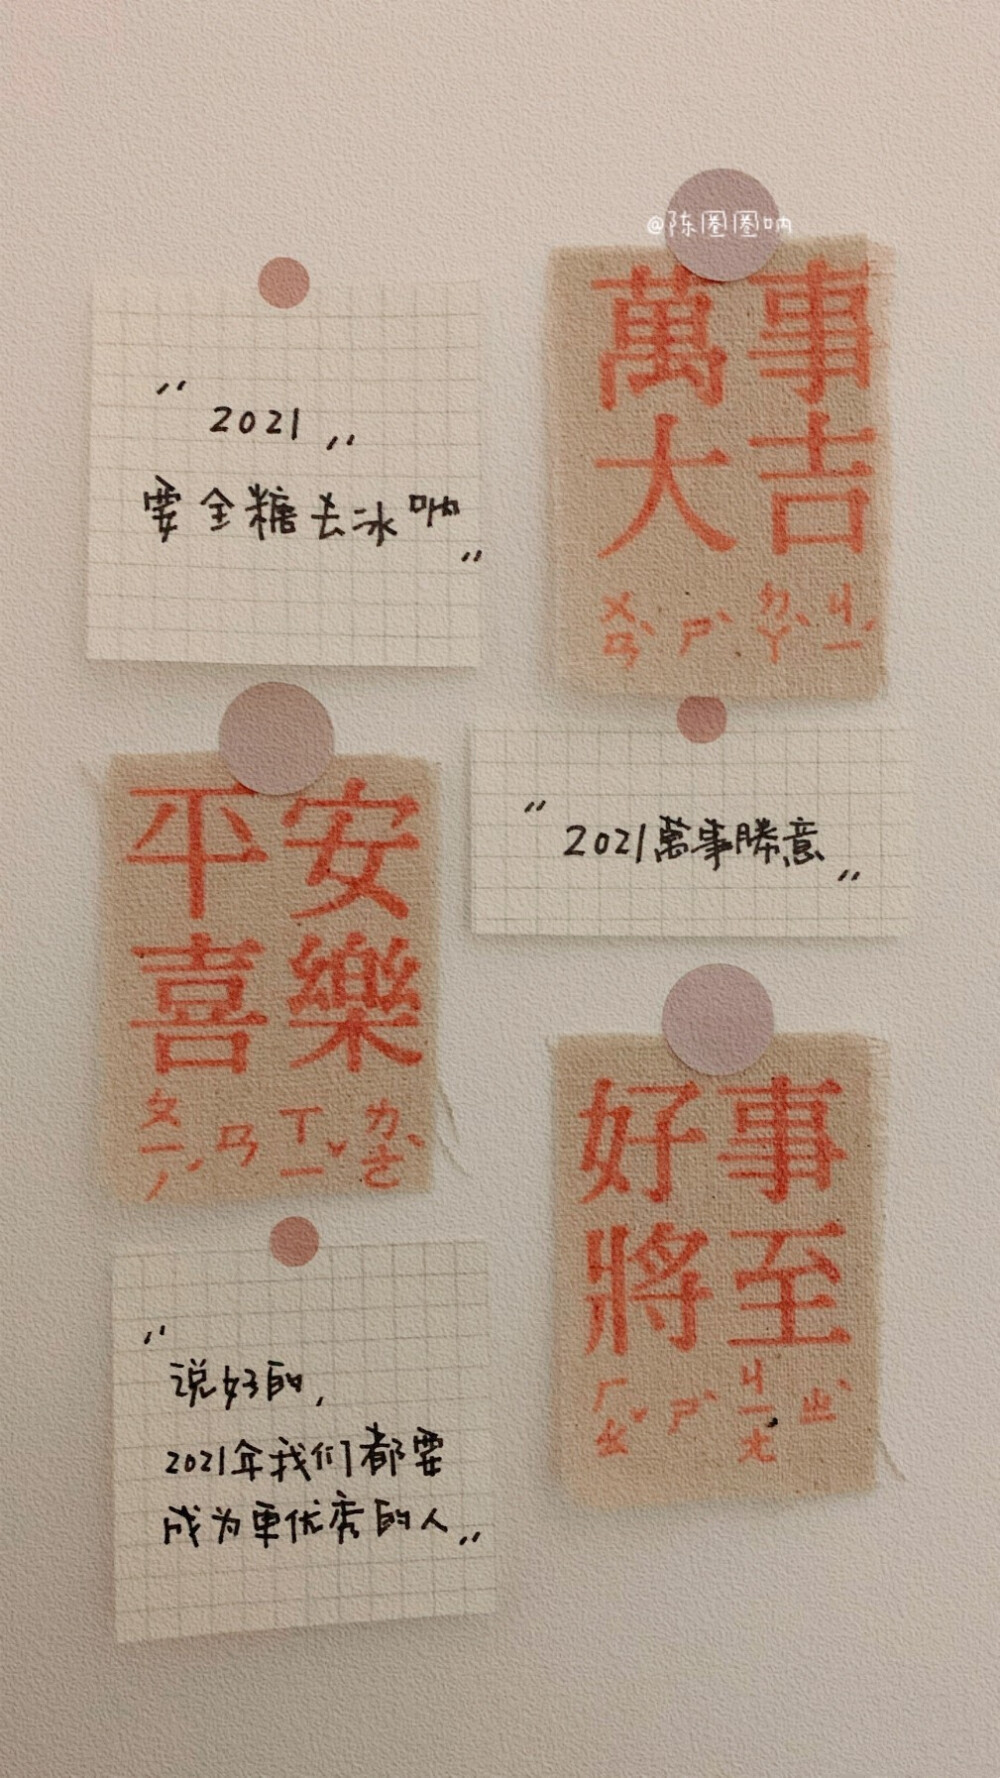 @陈圈圈呐
“2021”
要全糖去冰呐”
萬事
大吉
ㄨㄢˋ ㄕˋ ㄉㄚˋ ㄐㄧˊ
平安
喜樂
ㄆㄧㄥˊ ㄢ ㄒㄧˇ ㄌㄜˋ
“2021萬事勝意”
好事
將至
ㄏㄠˇ ㄕˋ ㄐㄧㄤ ㄓˋ
“说好的,
2021年我们都要
成为更优秀的人”